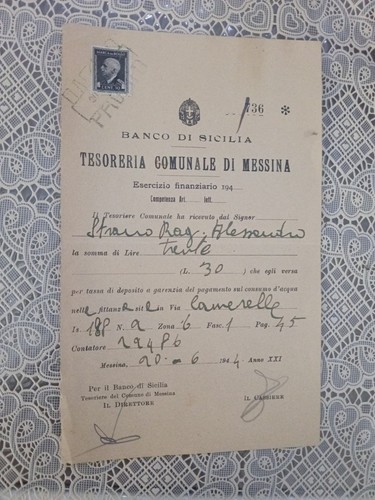 736 *
BANCO DI SICILIA
TESORERIA COMUNALE DI MESSINA
Esercizio finanziario 194
Competenza Art. lett.
Il Tesoriere Comunale ha ricevuto dal Signor
Strano Rag. Alessandro
la somma di Lire trenta
(L. 30) che egli versa
per tassa di deposito a garenzia del pagamento sul consumo d'acqua
nelle stanze site in Via Camerelle
Is. 188 N. 2 Zona 6 Fasc. 1 Pag. 45
Contatore 29486
Messina, 20-6 1944 Anno XXI
Per il Banco di Sicilia
Tesoriere del Comune di Messina
IL DIRETTORE
IL CASSIERE